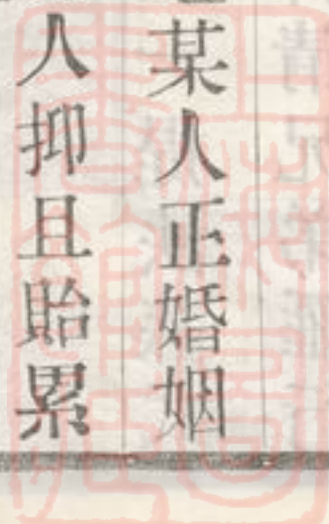 某人正婚姻
人抑且貽累